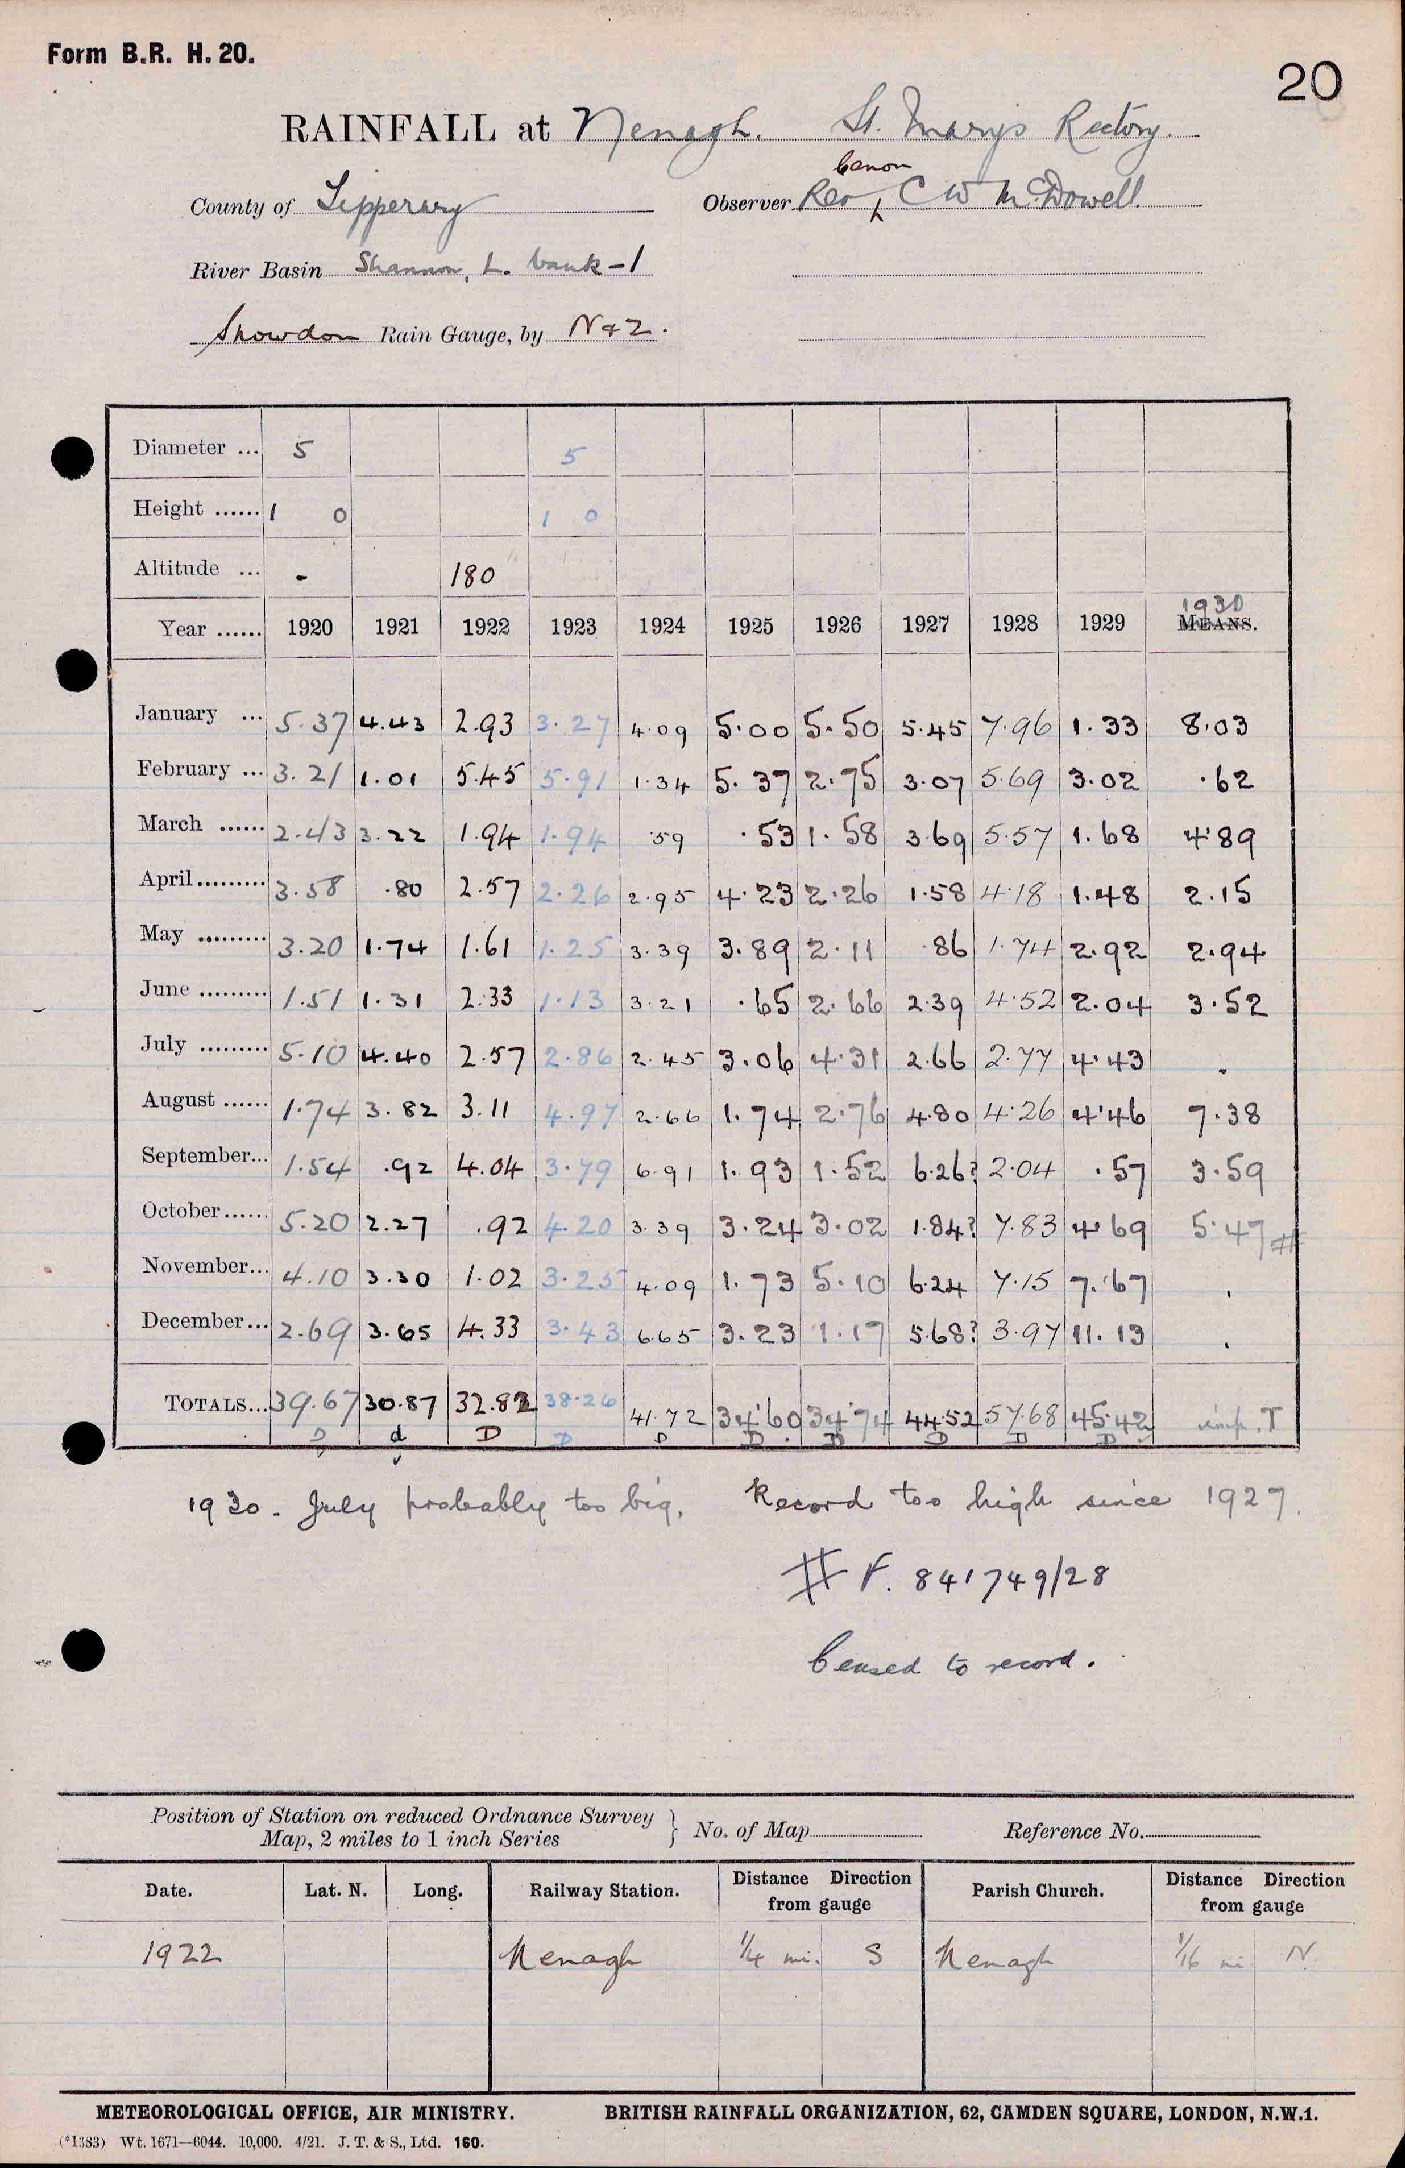 Form B.R. H. 20.
20
RAINFALL at Nenagh. St. Mary's Rectory.
Canon
County of Tipperary Observer Rev C W McDowell
River Basin Shannon, L. bank-1
Snowdon Rain Gauge, by N+Z.
Diameter ... 5 5
Height ...... 1 0 1 0
Altitude ... - 180
1930
Year ...... 1920 1921 1922 1923 1924 1925 1926 1927 1928 1929 MEANS.
January ... 5.37 4.43 2.93 3.27 4.09 5.00 5.50 5.45 7.96 1.33 8.03
February ... 3.21 1.01 5.45 5.91 1.34 5.37 2.75 3.07 5.69 3.02 .62
March ...... 2.43 3.22 1.94 1.94 .59 .53 1.58 3.69 5.57 1.68 4.89
April......... 3.58 .80 2.57 2.26 2.95 4.23 2.26 1.58 4.18 1.48 2.15
May ......... 3.20 1.74 1.61 1.25 3.39 3.89 2.11 .86 1.74 2.92 2.94
June ......... 1.51 1.31 2.33 1.13 3.21 .65 2.66 2.39 4.52 2.04 3.52
July ......... 5.10 4.40 2.57 2.86 2.45 3.06 4.31 2.66 2.77 4.43 .
August ...... 1.74 3.82 3.11 4.97 2.66 1.74 2.76 4.80 4.26 4.46 7.38
September... 1.54 .92 4.04 3.79 6.91 1.93 1.52 6.26? 2.04 .57 3.59
October...... 5.20 2.27 .92 4.20 3.39 3.24 3.02 1.84? 7.83 4.69 5.47 #
November... 4.10 3.30 1.02 3.25 4.09 1.73 5.10 6.24 7.15 7.67 .
December... 2.69 3.65 4.33 3.43 6.65 3.23 1.17 5.68? 3.97 11.13 .
TOTALS... 39.67 30.87 32.82 38.26 41.72 34.60 34.74 44.52 57.68 45.42 imp. T
D d D D D D D D D D
1930. July probably too big. Record too high since 1927.
# F. 841749/28
Ceased to record.
Position of Station on reduced Ordnance Survey
Map, 2 miles to 1 inch Series } No. of Map Reference No.
Date. Lat. N. Long. Railway Station. Distance Direction from gauge Parish Church. Distance Direction from gauge
1922 Nenagh 1/4 mi. S Nenagh 1/16 mi N
METEOROLOGICAL OFFICE, AIR MINISTRY. BRITISH RAINFALL ORGANIZATION, 62, CAMDEN SQUARE, LONDON, N.W.1.
(*1383) Wt. 1671—6044. 10,000. 4/21. J. T. & S., Ltd. 160.